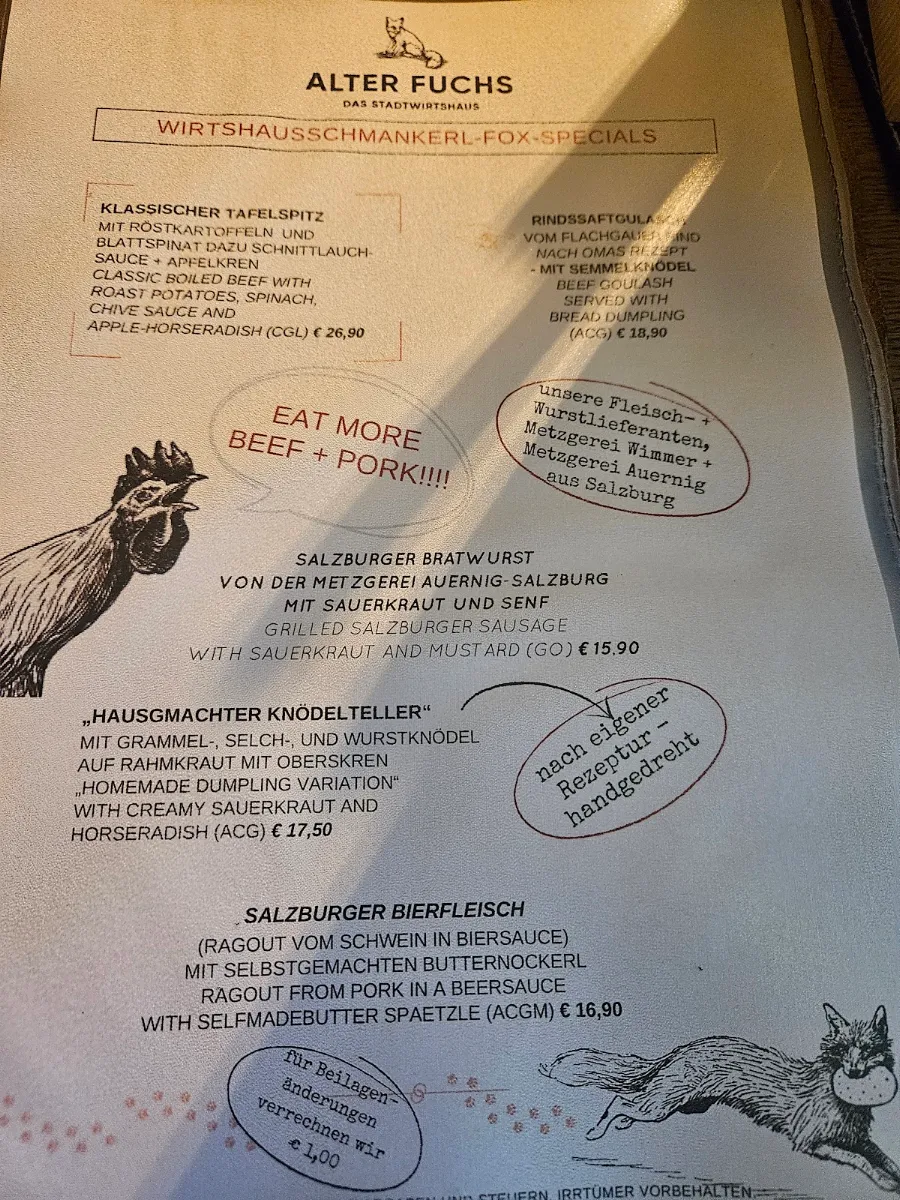 ALTER FUCHS
DAS STADTWIRTSHAUS
WIRTSHAUSSCHMANKERL-FOX-SPECIALS
KLASSISCHER TAFELSPITZ
MIT RÖSTKARTOFFELN UND
BLATTSPINAT DAZU SCHNITTLAUCH-
SAUCE + APFELKREN
CLASSIC BOILED BEEF WITH
ROAST POTATOES, SPINACH,
CHIVE SAUCE AND
APPLE-HORSERADISH (CGL) € 26,90
RINDSSAFTGULASCH
VOM FLACHGAUER RIND
NACH OMAS REZEPT
- MIT SEMMELKNÖDEL
BEEF GOULASH
SERVED WITH
BREAD DUMPLING
(ACG) € 18,90
EAT MORE
BEEF + PORK!!!!
unsere Fleisch- +
Wurstlieferanten,
Metzgerei Wimmer +
Metzgerei Auernig
aus Salzburg
SALZBURGER BRATWURST
VON DER METZGEREI AUERNIG-SALZBURG
MIT SAUERKRAUT UND SENF
GRILLED SALZBURGER SAUSAGE
WITH SAUERKRAUT AND MUSTARD (GO) € 15.90
„HAUSGMACHTER KNÖDELTELLER“
MIT GRAMMEL-, SELCH-, UND WURSTKNÖDEL
AUF RAHMKRAUT MIT OBERSKREN
„HOMEMADE DUMPLING VARIATION“
WITH CREAMY SAUERKRAUT AND
HORSERADISH (ACG) € 17,50
nach eigener
Rezeptur -
handgedreht
SALZBURGER BIERFLEISCH
(RAGOUT VOM SCHWEIN IN BIERSAUCE)
MIT SELBSTGEMACHTEN BUTTERNOCKERL
RAGOUT FROM PORK IN A BEERSAUCE
WITH SELFMADEBUTTER SPAETZLE (ACGM) € 16,90
für Beilagen-
änderungen
verrechnen wir
€ 1,00
UND STEUERN, IRRTÜMER VORBEHALTEN